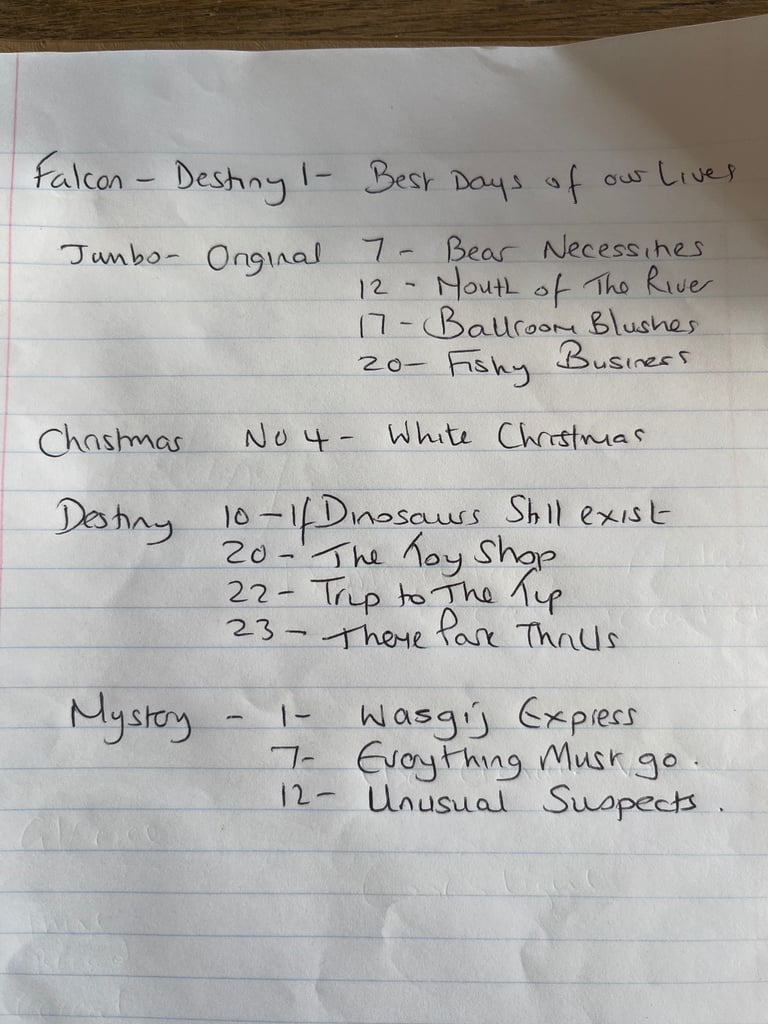 Falcon - Destiny 1- Best Days of our Lives
Jumbo- Original 7 - Bear Necessities
12 - Mouth of The River
17 - Ballroom Blushes
20- Fishy Business
Christmas No 4 - White Christmas
Destiny 10 - If Dinosaurs Still exist
20 - The Toy Shop
22 - Trip to The Tip
23 - Theme Park Thrills
Mystery - 1- Wasgij Express
7- Everything Must go.
12- Unusual Suspects.